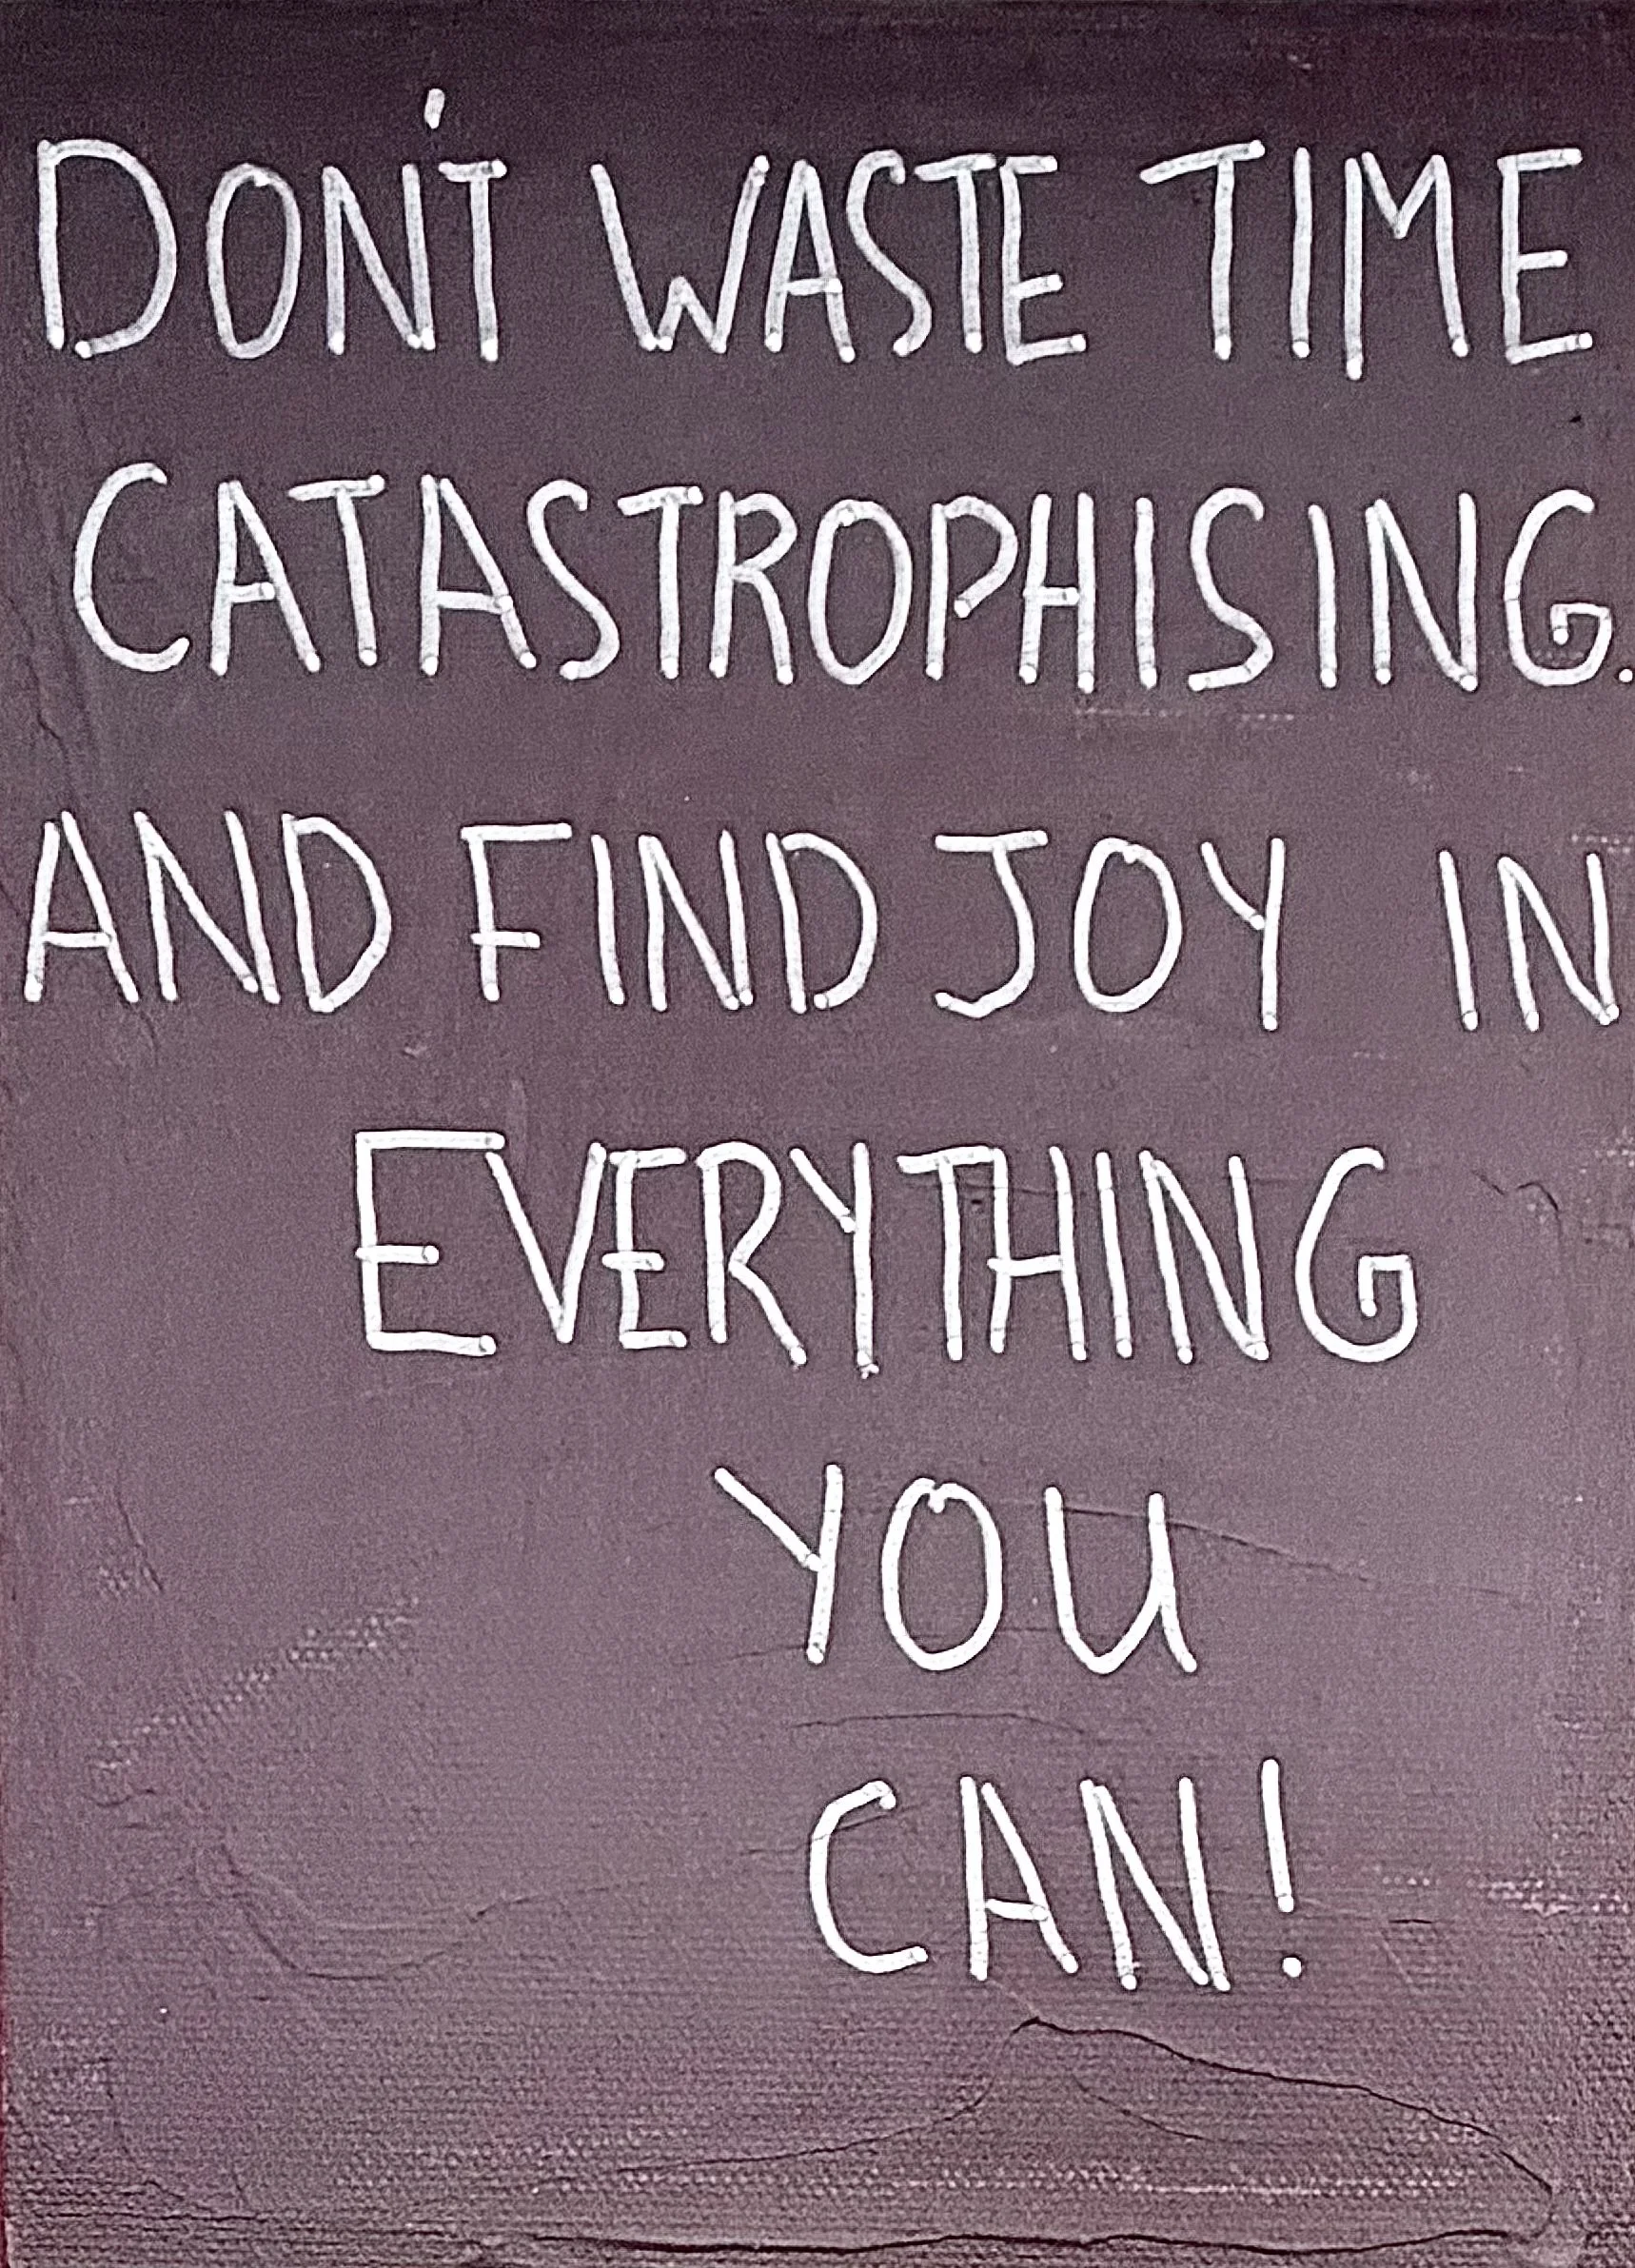 DON'T WASTE TIME
CATASTROPHISING.
AND FIND JOY IN
EVERYTHING
YOU
CAN!